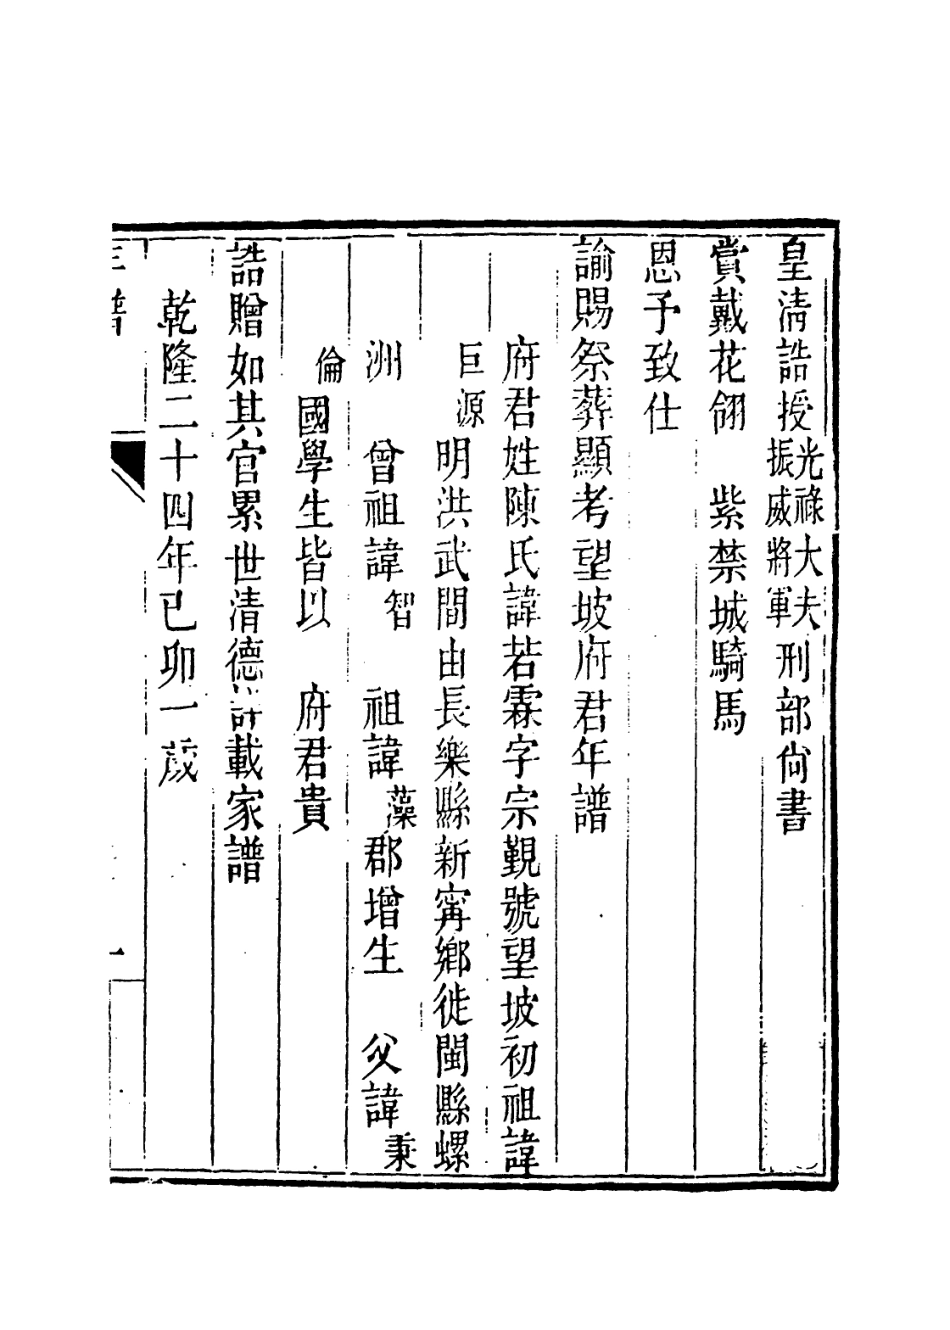 皇淸誥授光祿大夫振威將軍刑部尙書
賞戴花翎　紫禁城騎馬
恩予致仕
諭賜祭葬顯考望坡府君年譜
府君姓陳氏諱若霖字宗覲號望坡初祖諱
巨源　明洪武間由長樂縣新甯鄉徙閩縣螺
洲　曾祖諱智　祖諱藻郡增生　父諱秉
倫國學生皆以　府君貴
誥贈如其官累世清德詳載家譜
乾隆二十四年己卯一歲
年譜
一